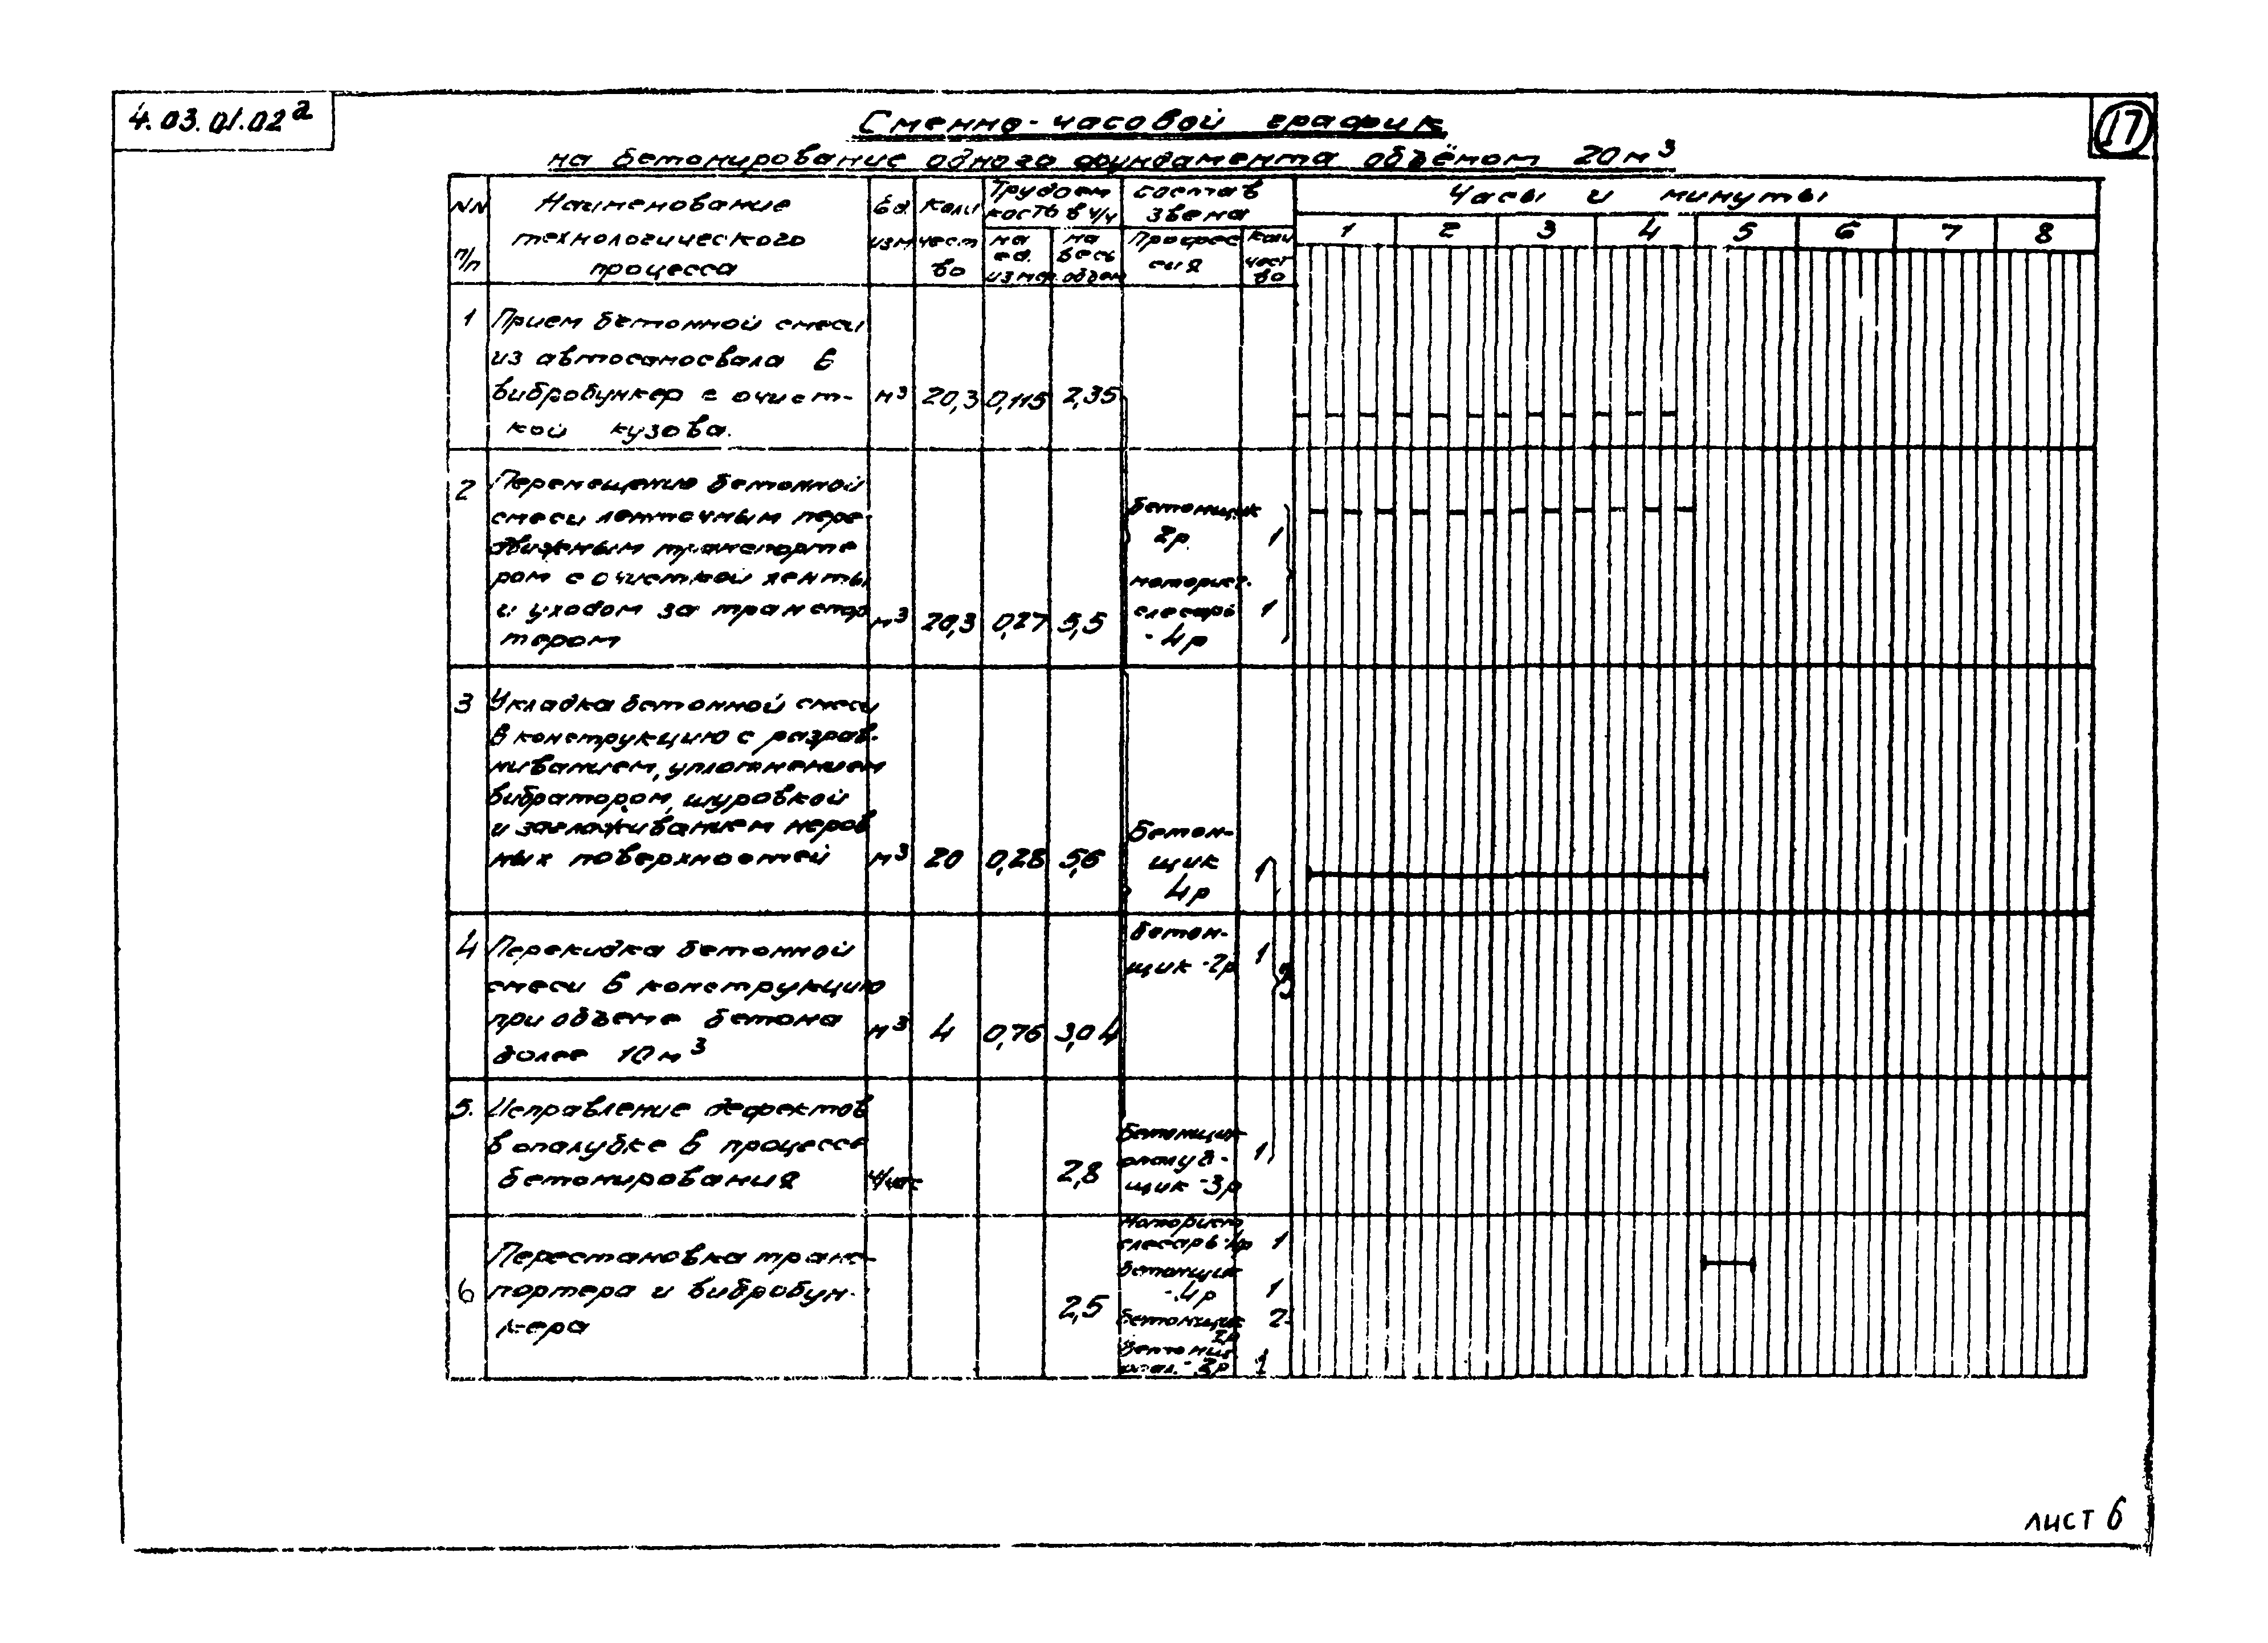 4.03.01.02а
17
Сменно-часовой график
на бетонирование одного фундамента объёмом 20м³
NN п/п
Наименование технологического процесса
Ед. изм
Коли чест во
Трудоем кость в ч/ч
на ед. измер.
на весь объем
состав звена
Професс сия
Коли чест во
Часы и минуты
1 2 3 4 5 6 7 8
1 Прием бетонной смеси
из автосамосвала в
вибробункер с очист-
кой кузова.
м³ 20,3 0,115 2,35
2 Перемещение бетонной
смеси ленточным пере-
движным транспорте
ром с очисткой ленты
и уходом за транспор
тером
м³ 20,3 0,27 5,5
бетонщик
2р. 1
моторист.
слесарь 1
-4р
3 Укладка бетонной смеси
в конструкцию с разрав-
ниванием, уплотнением
вибратором, шуровкой
и заглаживанием неров
ных поверхностей
м³ 20 0,28 5,6
Бетон-
щик 1
4р
4 Перекидка бетонной
смеси в конструкцию
при объеме бетона
более 10м³
м³ 4 0,76 3,04
бетон-
щик -2р 1
3
5. Исправление дефектов
в опалубке в процессе
бетонирования
ч/час 2,8
Бетонщик
опалуб- 1
щик -3р
6 Перестановка транс-
портера и вибробун-
кера
2,5
Моторист
слесарь-4р 1
бетонщик
-4р 1
бетонщик 2
2р
1
лист 6